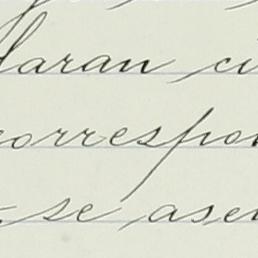 laran ci
correspon
se asen